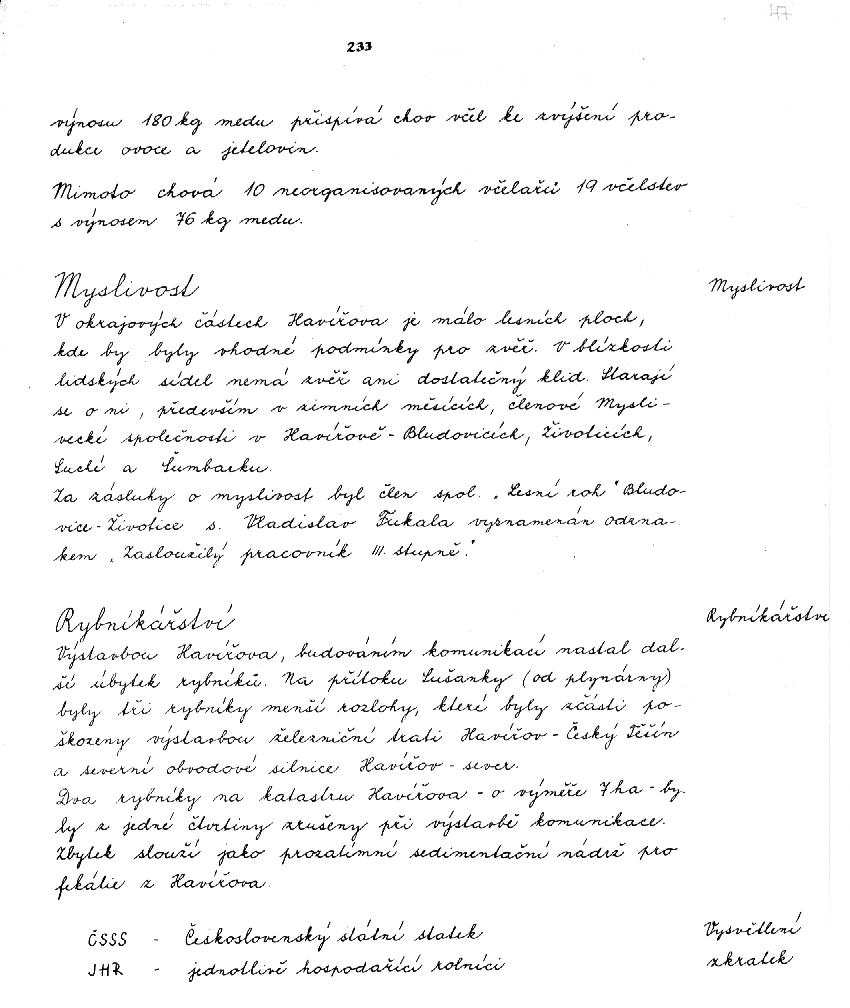 47
233
výnosu 180 kg medu přispívá chov včel ke zvýšení pro-
dukce ovoce a jetelovin.
Mimoto chová 10 neorganisovaných včelařů 19 včelstev
s výnosem 76 kg medu.
Myslivost
Myslivost
V okrajových částech Havířova je málo lesních ploch,
kde by byly vhodné podmínky pro zvěř. V blízkosti
lidských sídel nemá zvěř ani dostatečný klid. Starají
se o ni, především v zimních měsících, členové Mysli-
vecké společnosti v Havířově-Bludovicích, Životicích,
Suché a Šumbarku.
Za zásluhy o myslivost byl člen spol. „Lesní roh" Bludo-
vice-Životice s. Vladislav Fukala vyznamenán odzna-
kem „Zasloužilý pracovník III. stupně."
Rybníkářství
Rybníkářství
Výstavbou Havířova, budováním komunikací nastal dal-
ší úbytek rybníků. Na přítoku Sušanky (od plynárny)
byly tři rybníky menší rozlohy, které byly zčásti po-
škozeny výstavbou železniční trati Havířov-Český Těšín
a severní obvodové silnice Havířov-sever.
Dva rybníky na katastru Havířova - o výměře 7 ha - by-
ly z jedné čtvrtiny zrušeny při výstavbě komunikace.
Zbytek slouží jako prozatímní sedimentační nádrž pro
fekálie z Havířova.
ČSSS - Československý státní statek
Vysvětlení
JHR - jednotlivě hospodařící rolníci
zkratek